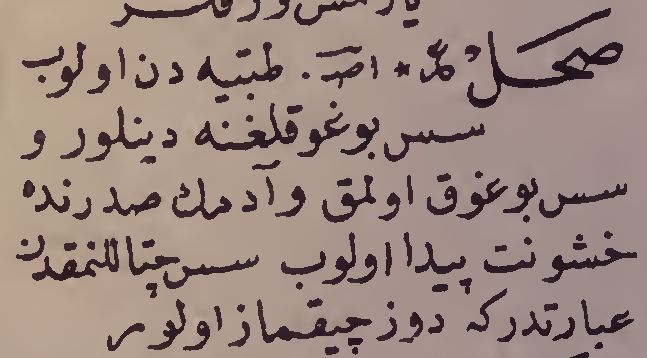 یازلمش ورقلر
صحل ع * اصـ. طبیه دن اولوب
سس بوغوقلغنه دینلور و
سس بوغوق اولمق و آدمك صدرنده
خشونت پیدا اولوب سس چتاللنمقدن
عبارتدرکه دوز چیقماز اولور